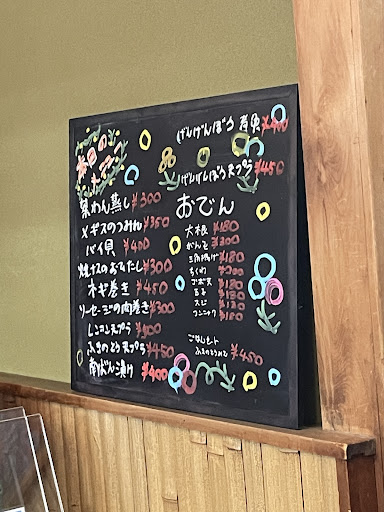 本日の
げんげんぼう 煮魚 ¥400
げんげんぼう天ぷら ¥450
茶わん蒸し ¥300
メギスのつみれ ¥350
バイ貝 ¥400
焼ナスのおひたし ¥300
ネギ巻き ¥450
ソーセージの肉巻き ¥300
レンコン天ぷら
ふきのとう天ぷら ¥450
南ばん漬け ¥400
おでん
大根 ¥180
がんも ¥200
三角揚げ ¥180
ちくわ ¥200
ゴボ天 ¥180
玉子
スジ
コンニャク
ふきのとうみそ ¥450